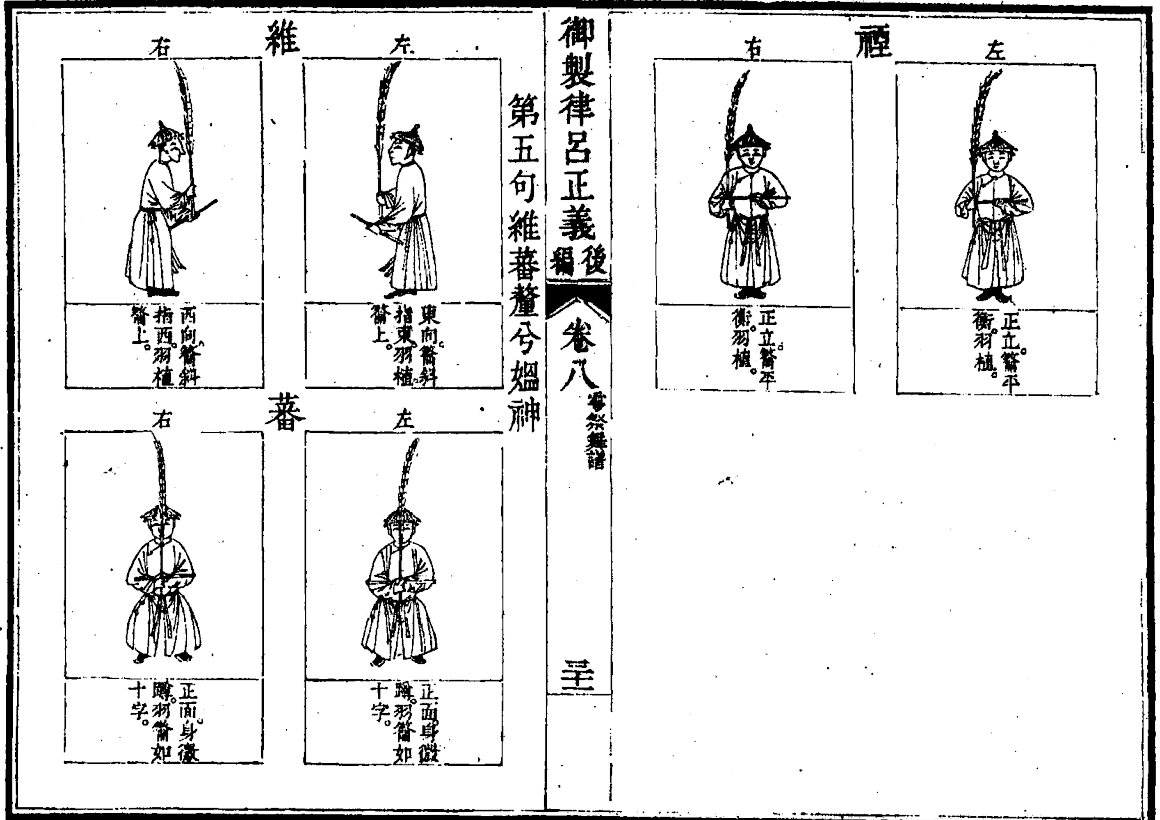 禋
左
正立。籥平
衡。羽植。
右
正立。籥平
衡。羽植。
御製律呂正義後編
卷八
雩祭舞譜
第五句維蕃釐兮媼神
維
左
東向。籥斜
指東。羽植
籥上。
右
西向。籥斜
指西。羽植
籥上。
蕃
左
正面。身微
蹲。羽籥如
十字。
右
正面。身微
蹲。羽籥如
十字。